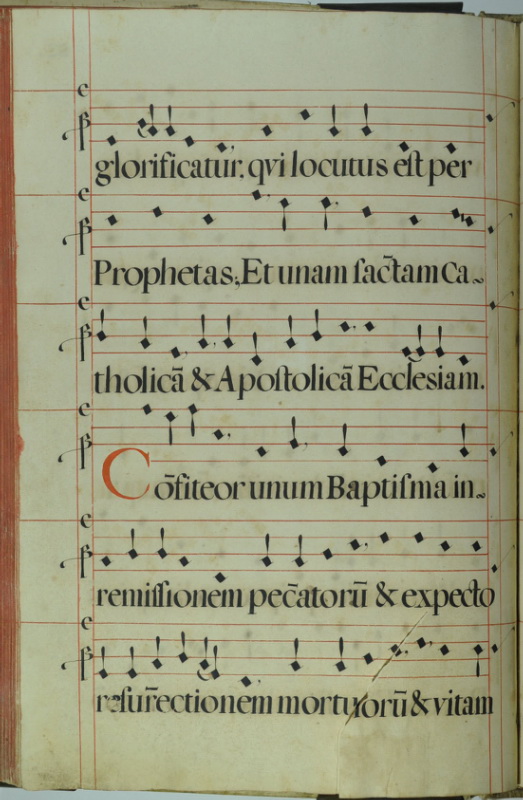 glorificatur. qui locutus est per
Prophetas, Et unam sac̄tam Ca~
tholicā & Apostolicā Ecclesiam.
Cōfiteor unum Baptisma in~
remissionem pec̄atorū & expecto
resur̄ectionem morturorū & vitam